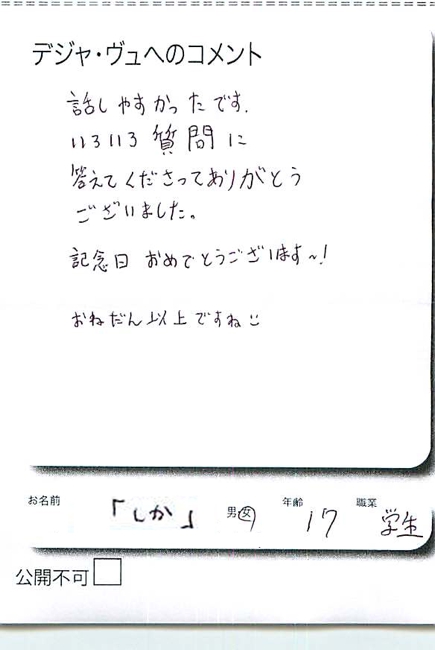 デジャ・ヴュへのコメント
話しやすかったです.
いろいろ質問に
答えてくださってありがとう
ございました。
記念日 おめでとうございます~!
おねだん以上ですね
お名前 「しか」 男 女 年齢 17 職業 学生
公開不可